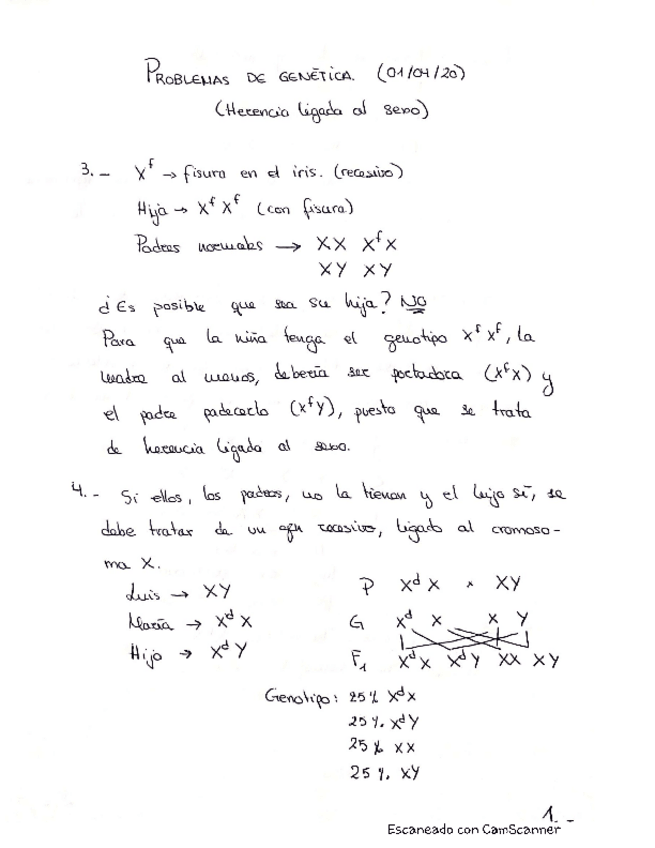 PROBLEMAS DE GENÉTICA. (01/04/20)
(Herencia ligada al sexo)
3.- Xᶠ → fisura en el iris. (recesivo)
Hija → Xᶠ Xᶠ (con fisura)
Padres normales → XX XᶠX
XY XY
¿Es posible que sea su hija? NO
Para que la niña tenga el genotipo Xᶠ Xᶠ, la
madre al menos, debería ser portadora (XᶠX) y
el padre padecerlo (XᶠY), puesto que se trata
de herencia ligada al sexo.
4.- Si ellos, los padres, no la tienen y el hijo sí, se
debe tratar de un gen recesivo, ligado al cromoso-
ma X.
Luis → XY P Xᵈ X × XY
María → Xᵈ X G Xᵈ X X Y
Hijo → Xᵈ Y F₁ XᵈX XᵈY XX XY
Genotipo: 25% XᵈX
25%. XᵈY
25% XX
25%. XY
1.-
Escaneado con CamScanner